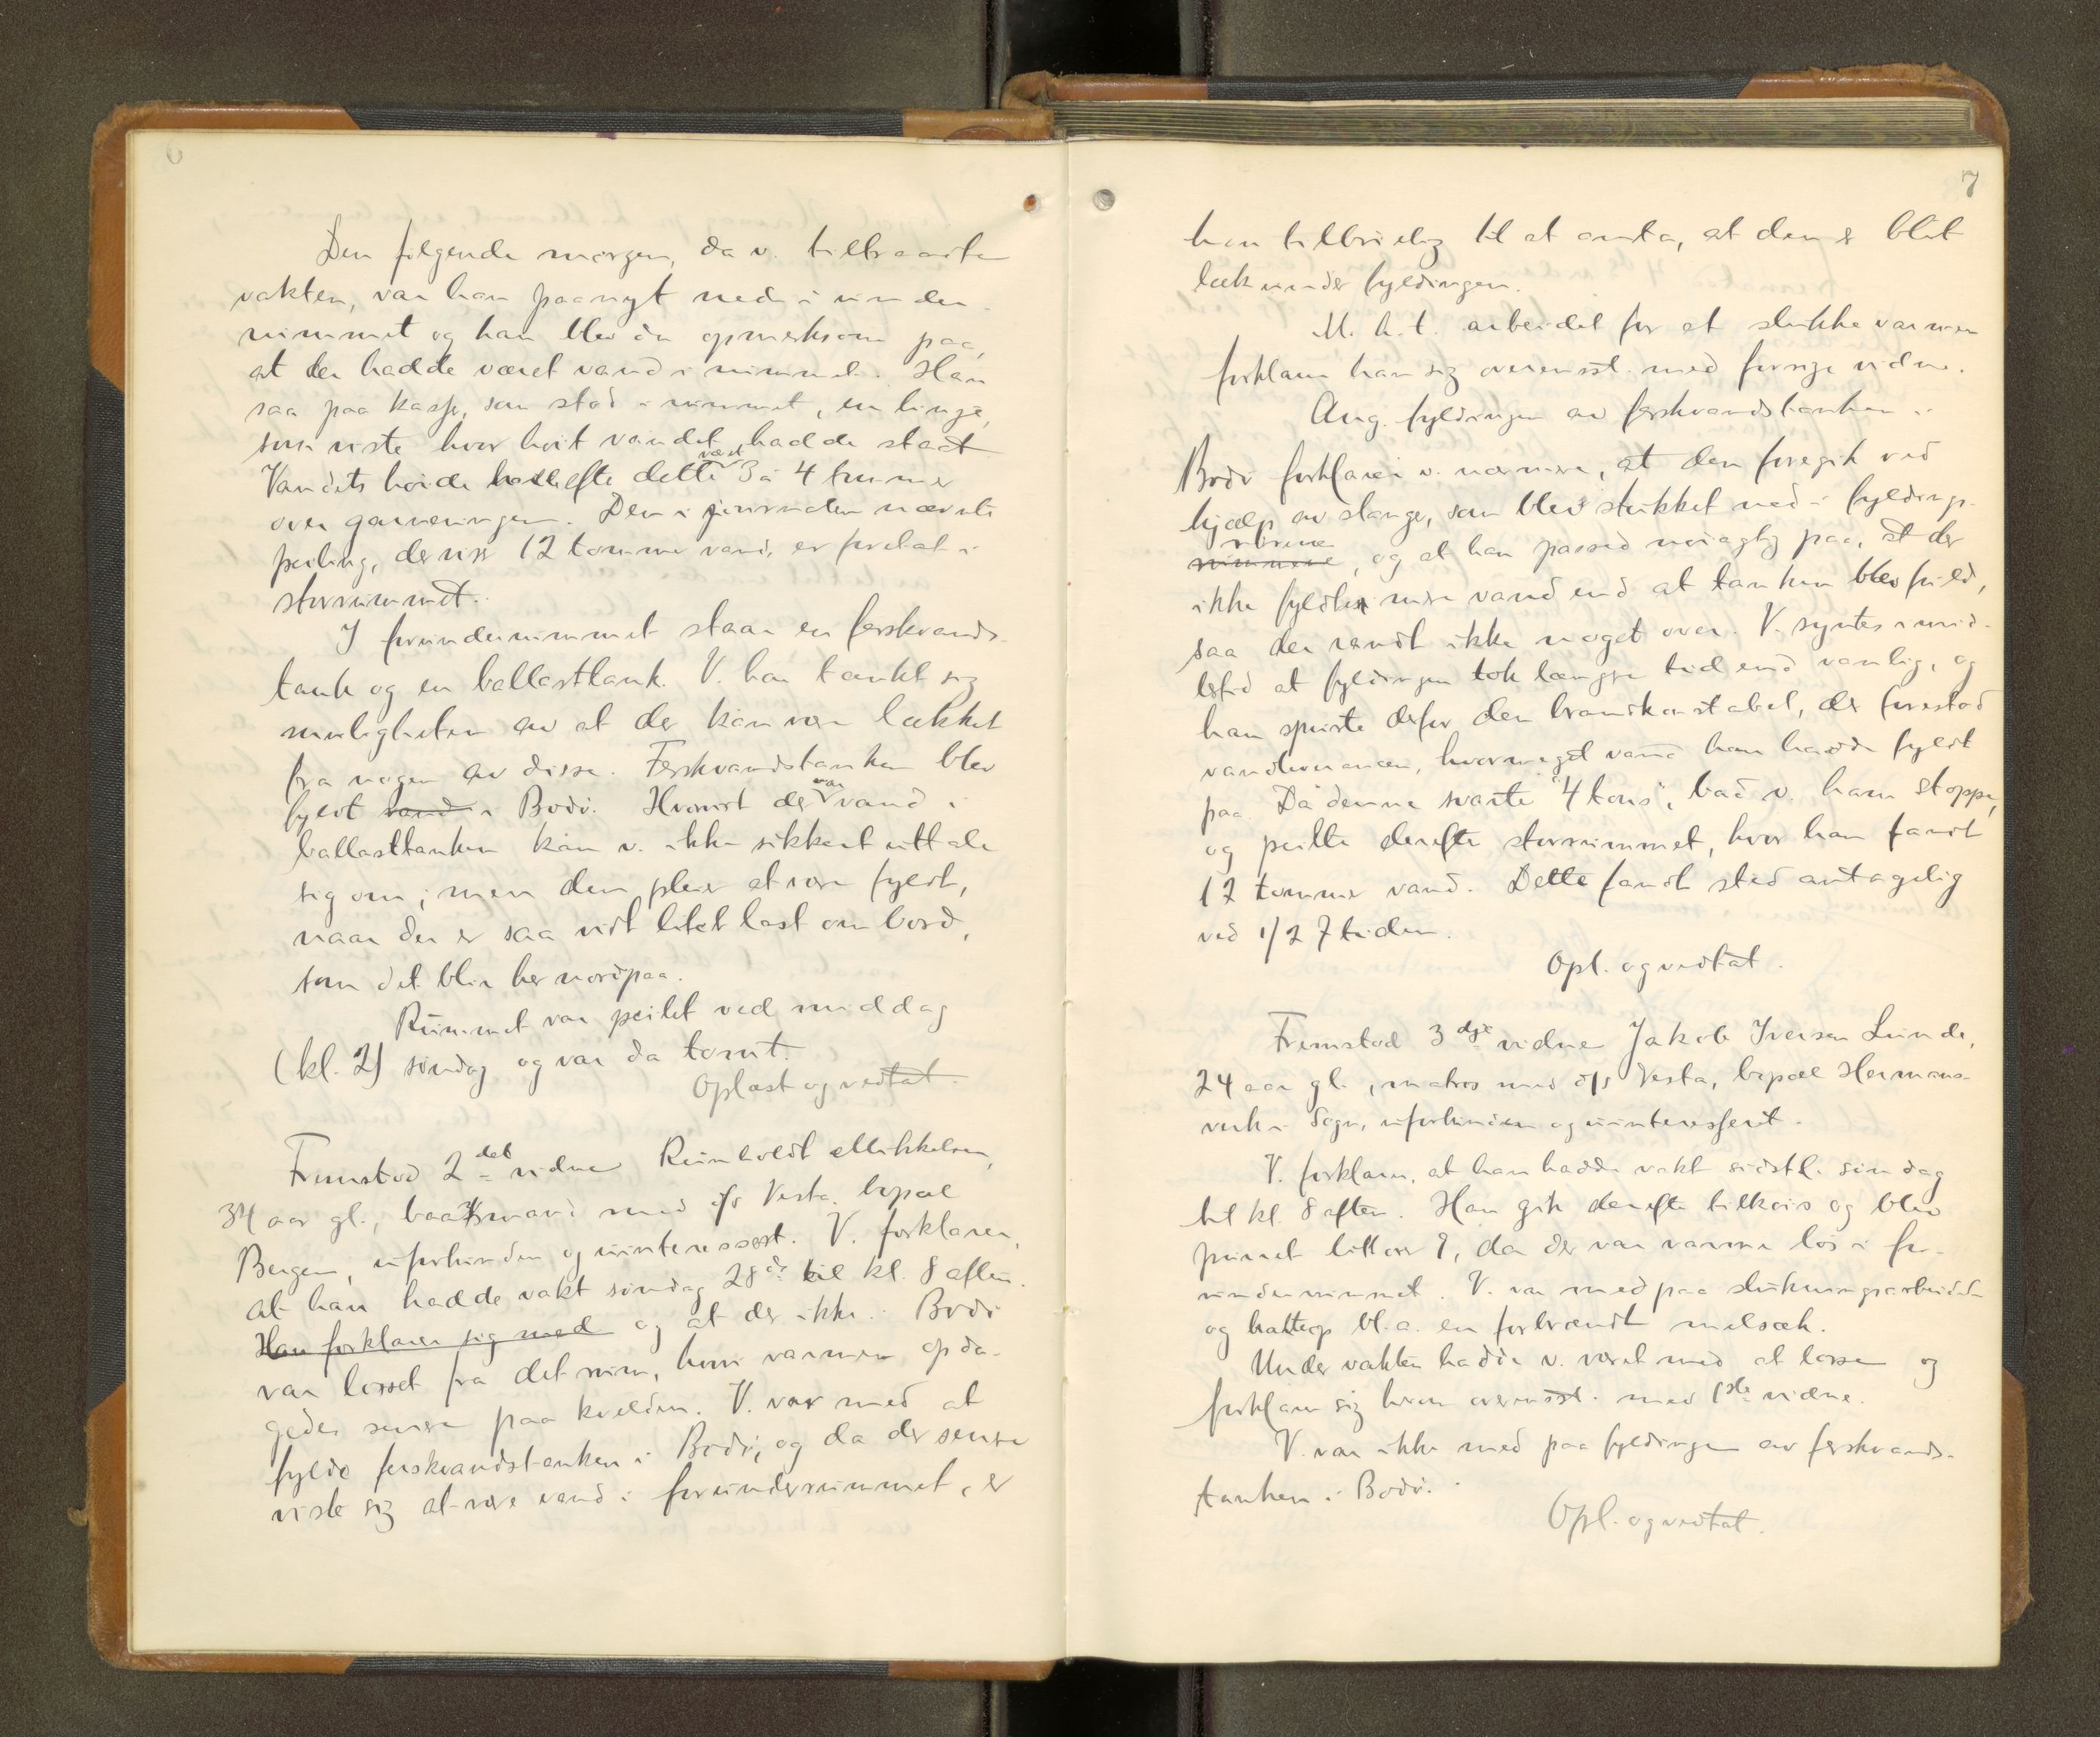 6
Den følgende morgen, da v. tiltraadte
vakten, var han paanyt nede i under
rummet og han blev da opmerksom paa,
at der hadde været vand i rummet. Han
saa paa kasse, som stod i rummet, en linje,
som viste hvor høit vandet hadde staat
Vandets høide har efter dette været 3 à 4 tommer
over garneringen. Den i journalen nævnte
peiling, der viser 12 tommer vand, er foretat i
storrummet.
I forunderrummet staar en ferskvands-
tank og en ballasttank. V. har tænkt sig
muligheten av at der kan være lækket
fra nogen av disse. Ferskvandstanken blev
fyldt vand i Bodø. Hvorvidt der var vand i
ballasttanken kan v. ikke sikkert uttale
sig om; men den pleier at være fyldt,
naar der er saa vidt litet last om bord,
som det blir her nordpaa.
Rummet var peilet ved middag
(kl. 2) søndag og var da tomt.
Oplæst og vedtat.
Fremstod 2det vidne Reinholdt Mikkelsen,
34 aar gl., baatsmand med d/s Vesta, bopæl
Bergen, uforbunden og uinteressert. V. forklarer,
at han hadde vakt søndag 28de til kl. 8 aften.
Han forklarer sig med og at der ikke i Bodø
var losset fra det rum, hvori varmen opda-
gedes senere paa kvelden. V. var med at
fylde ferskvandstanken i Bodø, og da der senere
viste sig at være vand i forunderrummet, er
7
han tilbøielig til at anta, at den er blit
læk under fyldingen.
M. h. t. arbeidet for at slukke varmen
forklarer han sig overensst. med forrige vidne.
Ang. fyldingen av ferskvandstanken i
Bodø forklarer v. nærmere, at den foregik ved
hjælp av slange, som blev stukket ned i fyldings-
rørene
rummene, og at han passed nøiagtig paa, at der
ikke fyldtes mere vand end at tanken blev fuld,
saa der randt ikke noget over. V. syntes imid-
lertid at fyldingen tok længre tid end vanlig, og
han spurte derfor den brandkonstabel, der forestod
vandleverancen, hvormeget vand han hadde fyldt
paa. Da denne svarte "4 tons", bad v. ham stoppe,
og peilte derefter storrummet, hvor han fandt
12 tommer vand. Dette fandt sted antagelig
ved 1/2 7 tiden.
Opl. og vedtat.
Fremstod 3dje vidne Jakob Iversen Lunde,
24 aar gl., matros med d/s Vesta, bopæl Hermans-
verk i Sogn, uforbunden og uinteressert.
V. forklarer, at han hadde vakt sidstl. søndag
til kl. 8 aften. Han gik derefter tilkøis og blev
purret litt over 9, da der var varme løs i for-
underrummet. V. var med paa slukningsarbeidet
og halte op bl.a. en forbrændt melsæk.
Under vakten hadde v. været med at losse og
forklarer sig herom overensst. med 1ste vidne.
V. var ikke med paa fyldingen av ferskvands-
tanken i Bodø.
Opl. og vedtat.